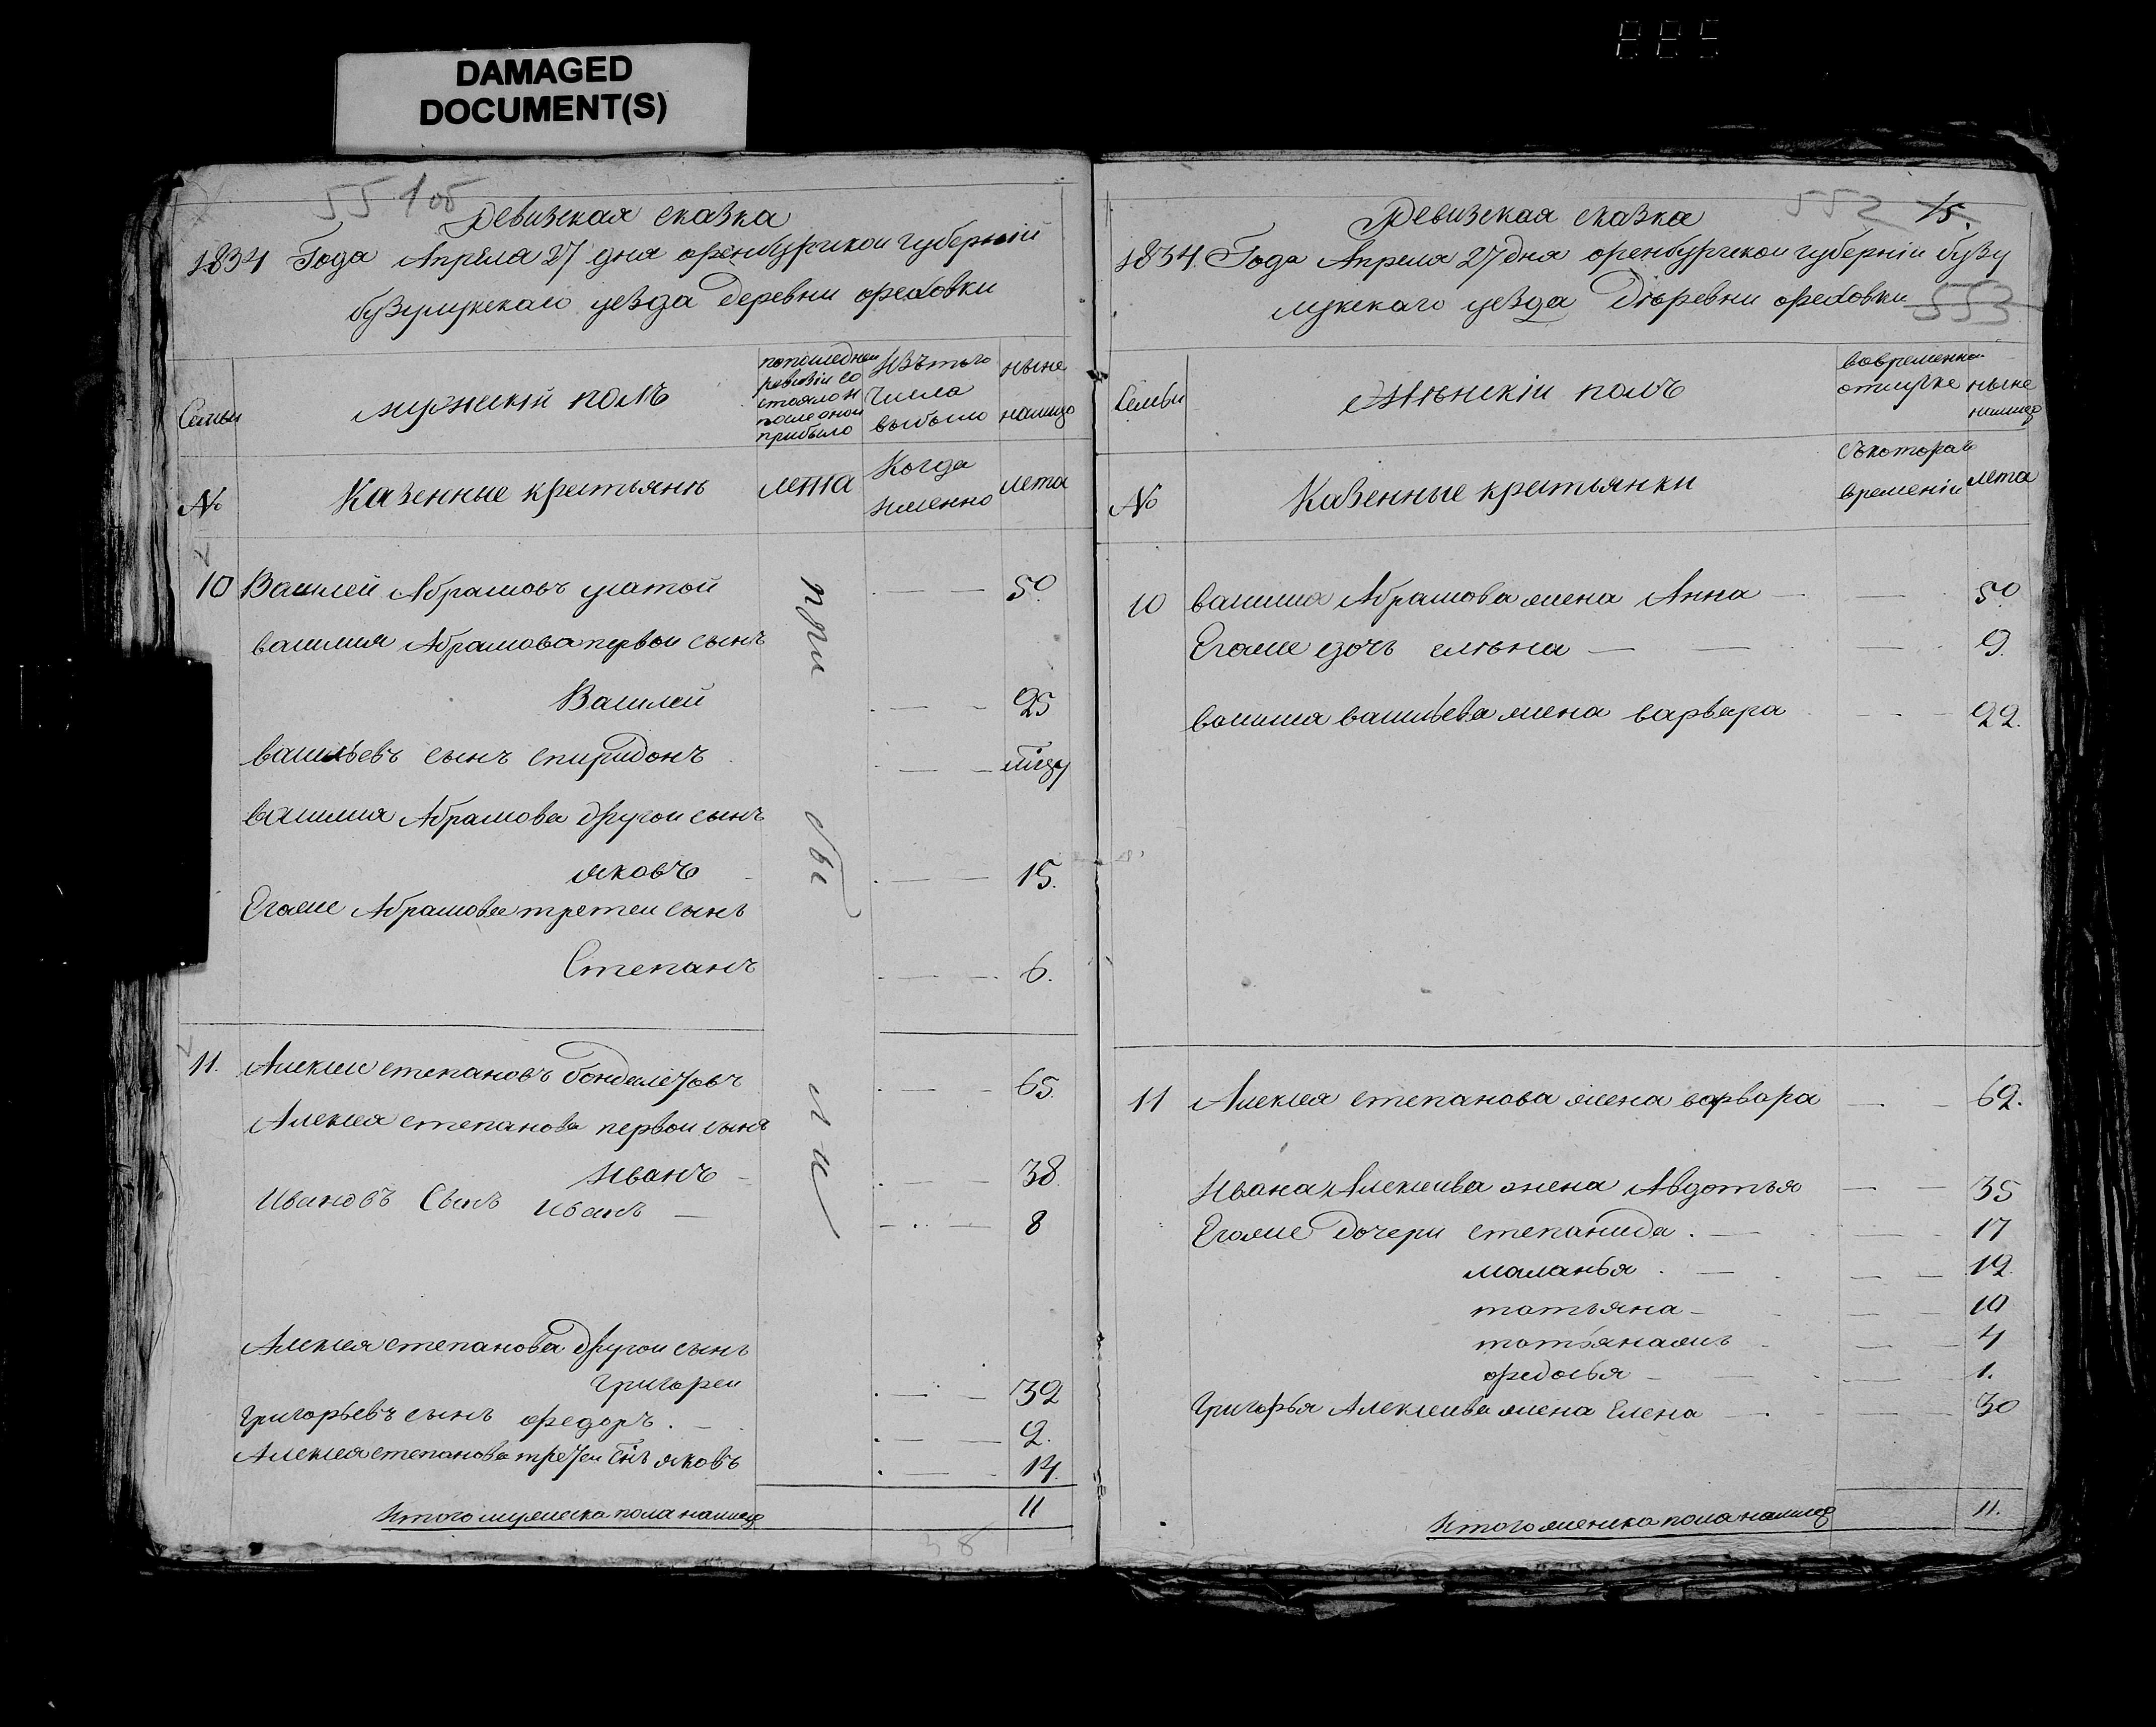 DAMAGED
DOCUMENT(S)
885
55 105
Ревизская сказка
1834 Года Апреля 27 дня оренбургской губерніи
бузулукскаго уезда деревни ореховки
Семьи
мужескій полъ
попоследней
ревизіи со
стояло и
после оной
прибыло
Изътого
числа
выбыло
ныне
налицо
№
Казенные крестьянѣ
лета
Когда
именно
лета
10 Василей Абрамовъ 50
василия Абрамова первои сынъ
Василей 25
васильевъ сынъ спиридонъ
василия Абрамова другои сынъ
яковъ 15.
Егоже Абрамова третеи сынъ
Степанъ 6.
11. Алексеи степановъ 65.
Алексея степанова первои сынъ
Иванъ 38.
Ивановъ Сынъ Иванъ 8
Алексея степанова другои сынъ
Григореи 32
Григорьевъ сынъ федоръ. 2.
Алексея степанова третеи снъ яковъ 14.
Итого мужеска пола налицо 11
прибыли
38
552 15.
Ревизская сказка
1834. Года Апреля 27 дня оренбургской губерніи бузу
лукскаго уезда Деревни ореховки 553
Семьи
Женскіи полъ
вовременной
отлучке
ныне
налицо
№
Казенные крестьянки
съкотораго
времени
лета
10 василия Абрамова жена Анна 50
Егоже дочь елена 9.
василия васильева жена варвара 22.
11 Алексея степанова жена варвара 62.
Ивана Алексеива жена Авдотья 35
Егоже Дочери степанида. 17
маланья. 12
татьяна 10
татьянажъ 4
федосья 1.
Григорья Алексеива жена Елена 30
Итого женска пола налицо 11.